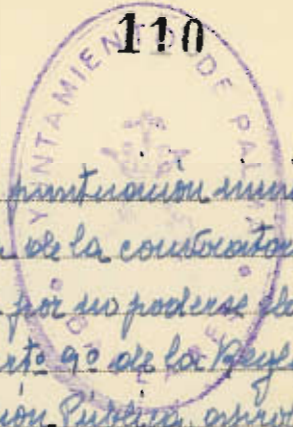 110
AYUNTAMIENTO DE PAL
puntuación
de la convocator
por no poderse
art.º 9º de la Regl
ión Pública, aprob